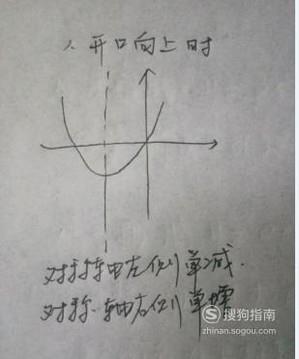 1. 开口向上时
对称轴左侧单减.
对称轴右侧单增
搜狗指南
zhinan.sogou.com